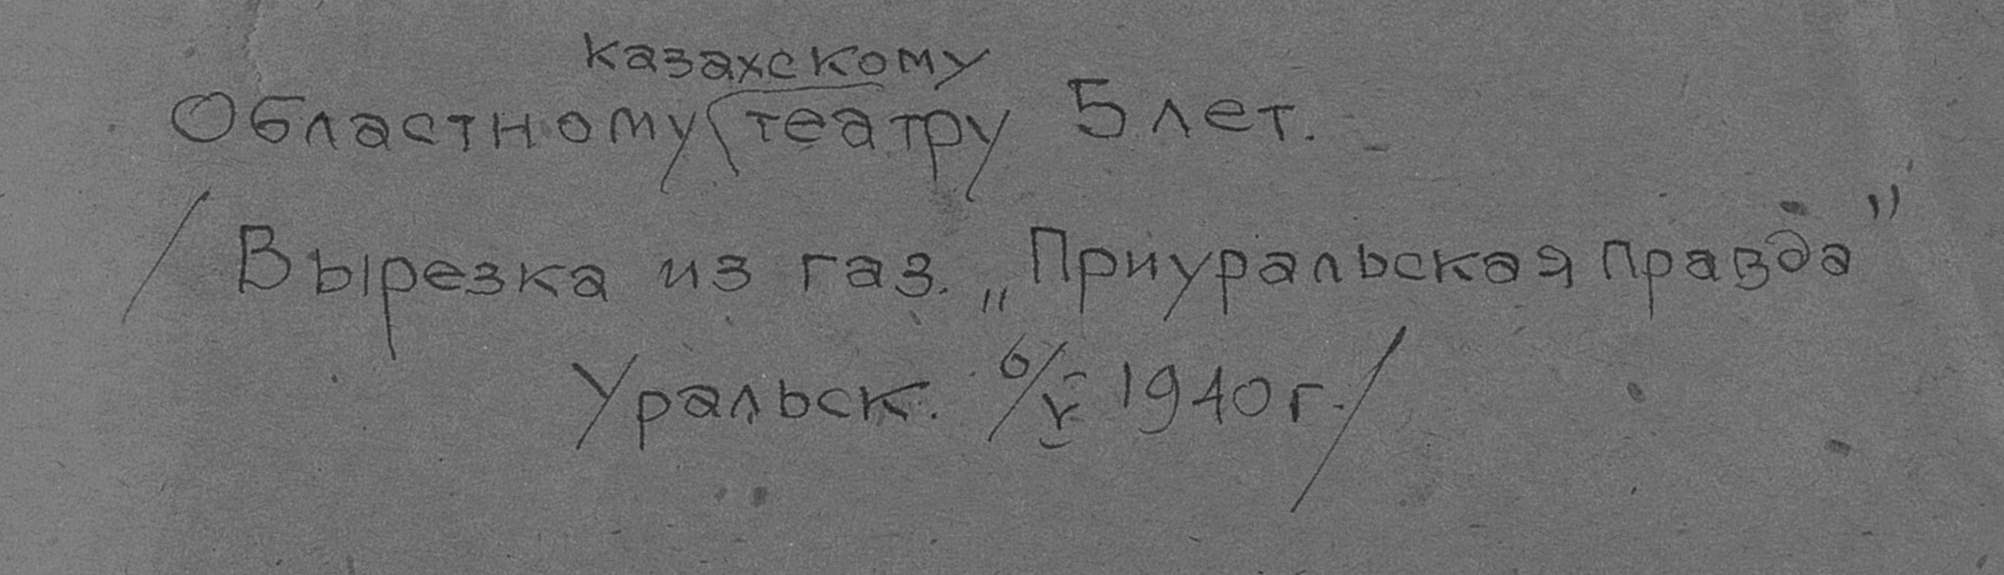 Областному казахскому театру 5 лет.
/Вырезка из газ. „Приуральская правда"
Уральск. 6/V 1940 г./